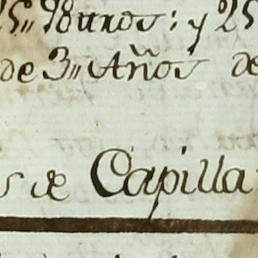 25" 98 unos: y 25
de 3" Años de
s de Capilla